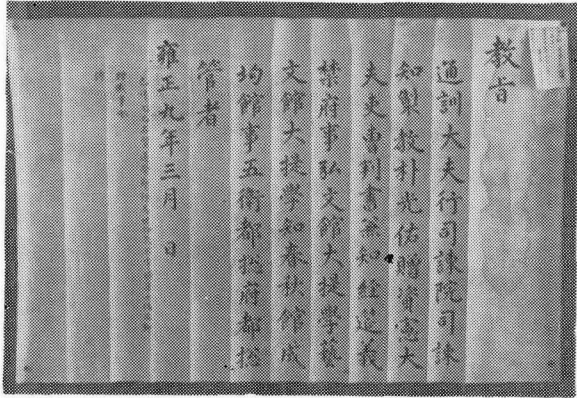 教旨
通訓大夫行司諫院司諫
知製教朴光佑贈資憲大
夫吏曹判書兼知經筵義
禁府事弘文館大提學藝
文館大提學知春秋館成
均館事五衛都摠府都摠
管者
雍正九年三月 日